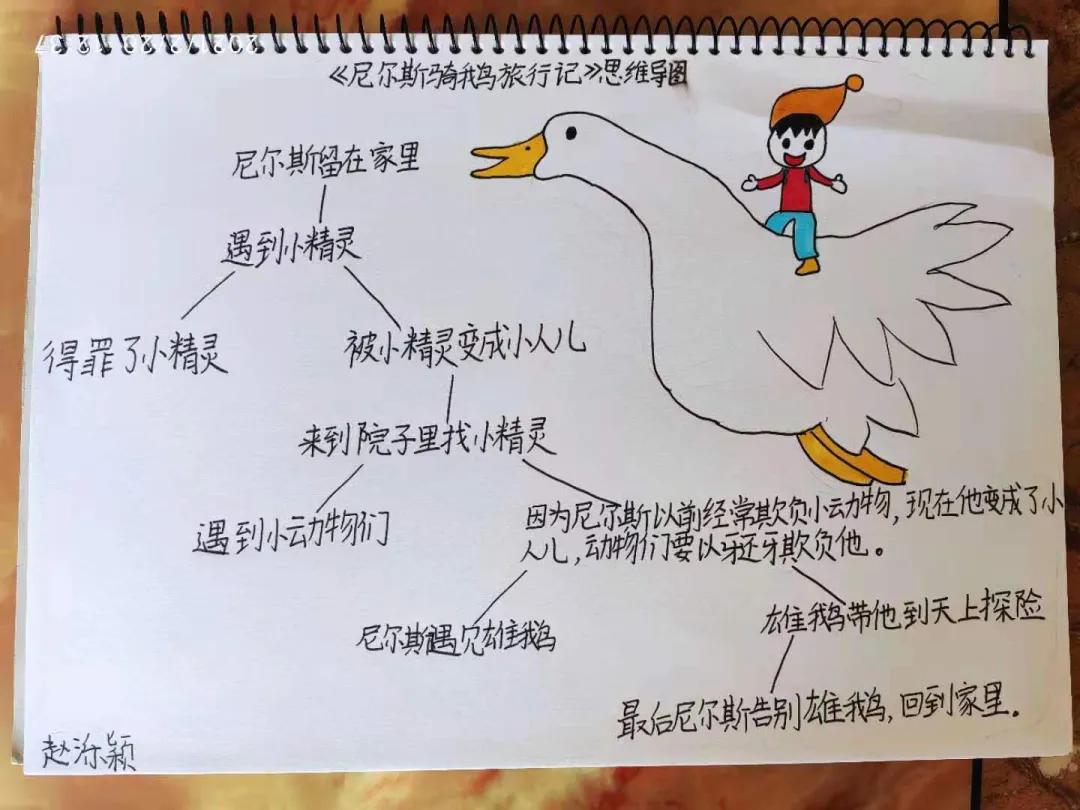 《尼尔斯骑鹅旅行记》思维导图
尼尔斯留在家里
遇到小精灵
得罪了小精灵
被小精灵变成小人儿
来到院子里找小精灵
遇到小动物们
因为尼尔斯以前经常欺负小动物,现在他变成了小
人儿,动物们要以牙还牙欺负他。
尼尔斯遇见雄鹅
雄鹅带他到天上探险
最后尼尔斯告别雄鹅,回到家里。
赵泺颖